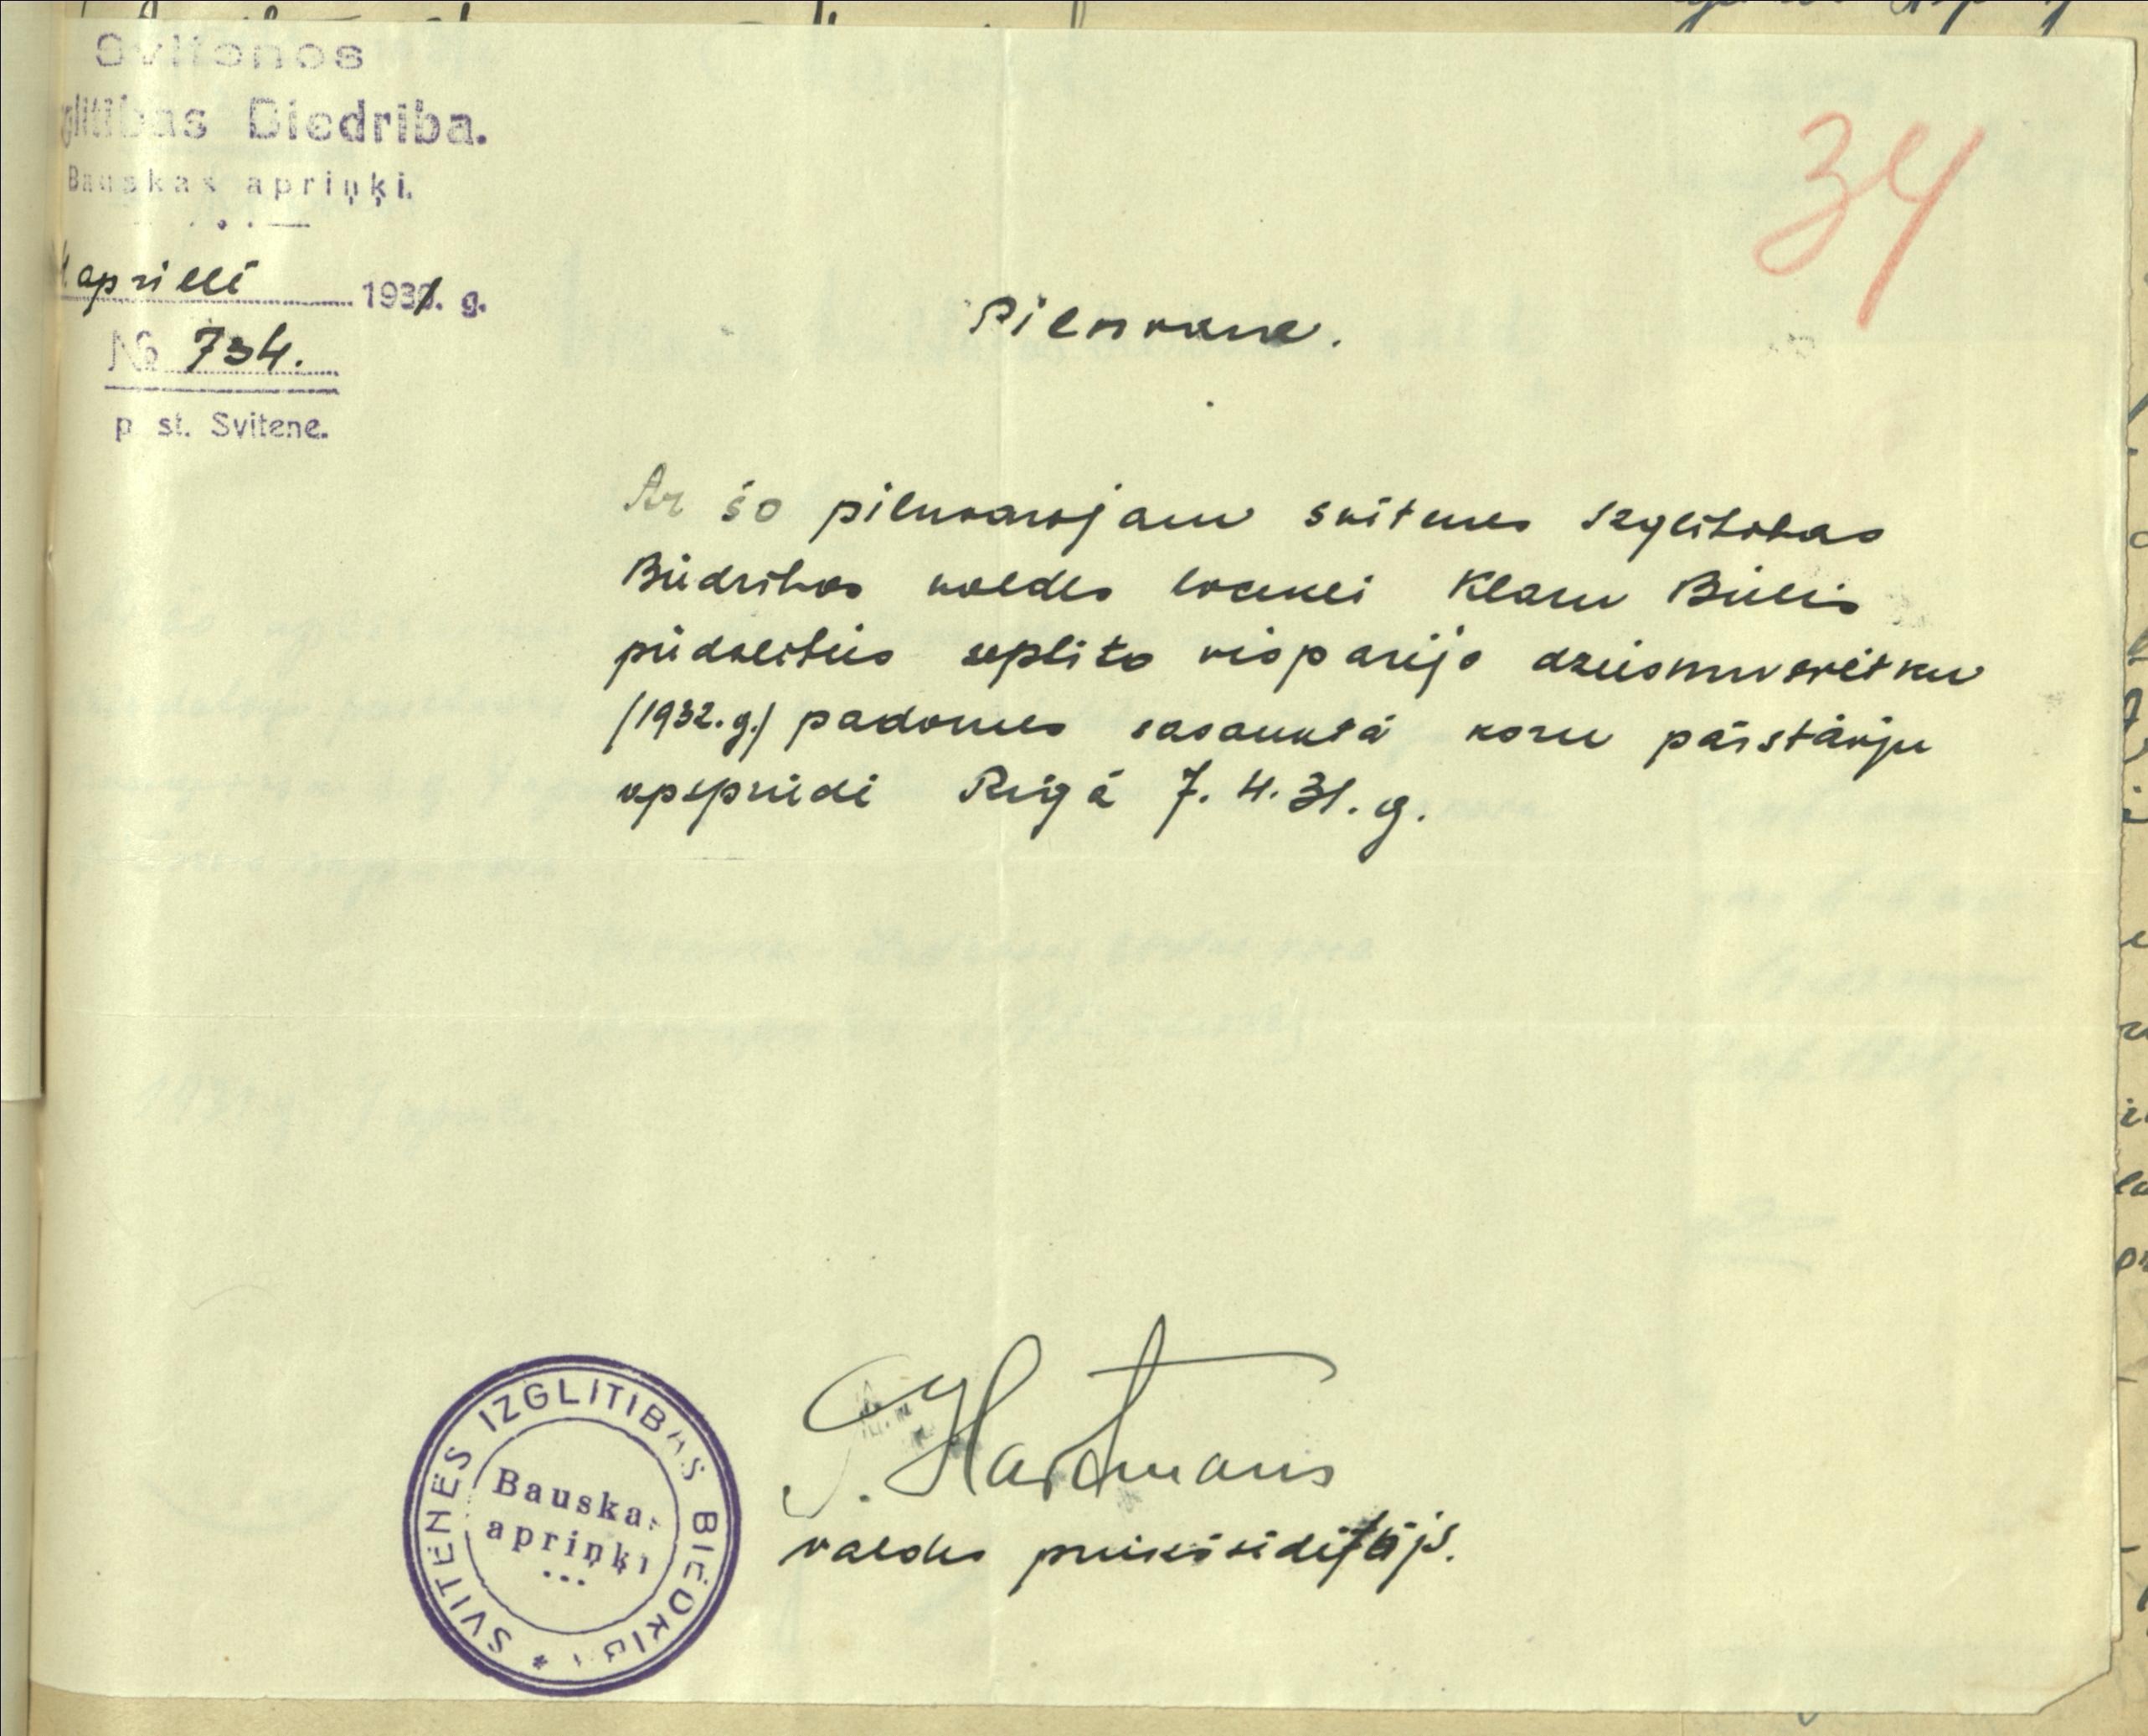 Svitenes
glītības Biedrība.
Bauskas apriņķī.
aprilī 1931. g.
№ 734.
p. st. Svitene.
34
Pilnvara.
Ar šo pilnvarojam Svitenes Izglītības
Biedrības valdes locekli Klaru Bieli
piedalīties septīto vispārējo dziesmusvētku
/1932.g./ padomes sasauktā koru pārstāvju
apspriedē Rīgā 7. 4. 31. g.
Hartmanis
valdes priekšsēdētājs.
SVITENES IZGLITIBAS BIEDRIBA *
Bauskas
apriņķī